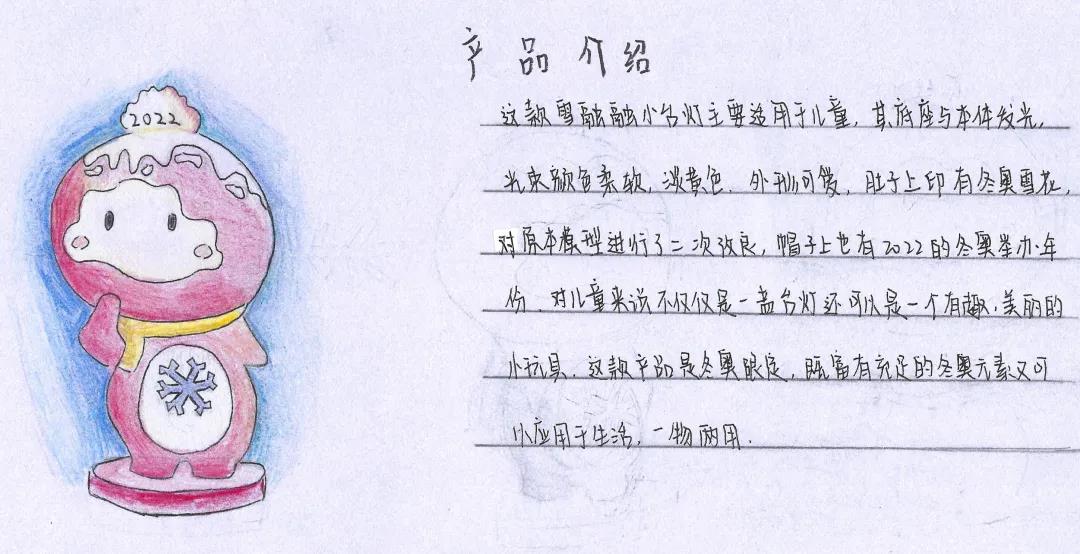 产品介绍
2022
这款雪融融小台灯主要适用于儿童，其底座与本体发光，
光束颜色柔软，淡黄色，外形可爱，肚子上印有冬奥雪花，
对原本模型进行了二次改良，帽子上也有2022的冬奥举办年
份，对儿童来说不仅仅是一盏台灯还可以是一个有趣、美丽的
小玩具，这款产品是冬奥限定，既富有充足的冬奥元素又可
以应用于生活，一物两用.